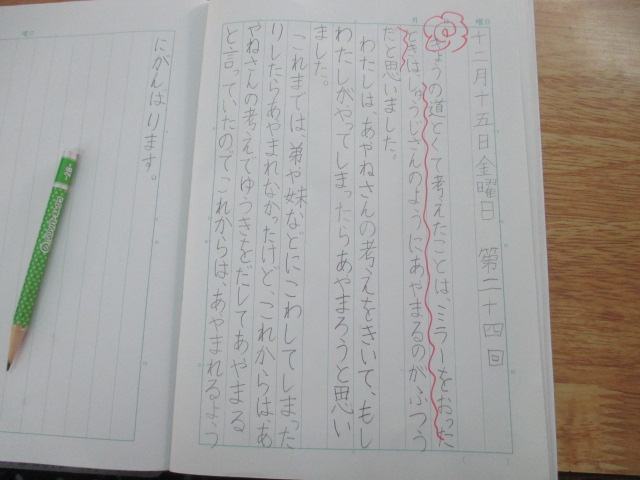 十二月十五日金曜日 第二十四回
きょうの道とくで考えたことは、ミラーをおった
ときは、しゅうじさんのようにあやまるのがふつう
だと思いました。
わたしは、あやねさんの考えをきいて、もし
わたしがやってしまったらあやまろうと思い
ました。
これまでは、弟や妹などにこわしてしまった
りしたらあやまれなかったけど、これからは、あ
やねさんの考えでゆうきをだしてあやまる
と言っていたので、これからは、あやまれるよう
にがんはります。